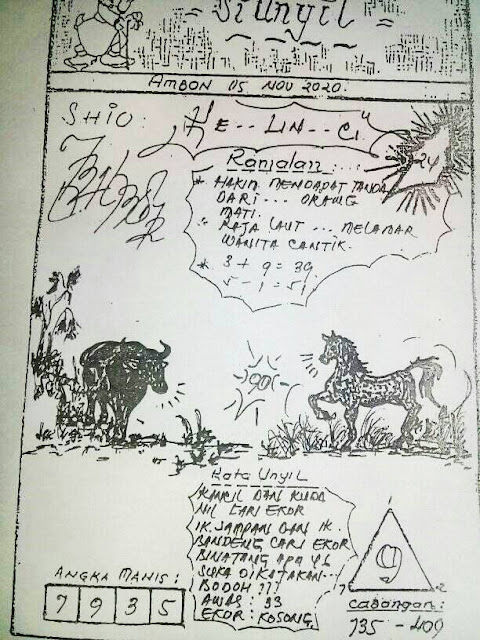 Si Unyil
AMBON 05 NOV 2020.
SHIO:
KE.. LIN.. CI"
Ramalan:...
* HAKIM MENDAPAT TANDA
DARI... ORANG
MATI.
* RAJA LAUT... MELAMAR
WANITA CANTIK.
* 3 + 9 = 39
5 - 1 = 51
24
Kata Unyil
KANCIL DAN KUDA
NIL CARI EKOR
IK. SAMPAN DAN IK.
BANDENG CARI EKOR
BINATANG APA YG
SUKA DIKATAKAN...
BODOH ???
AWAS: 33
EKOR: KOSONG.
9
7
2
ANGKA MANIS:
7 9 3 5
Cabangan:
735 - 409